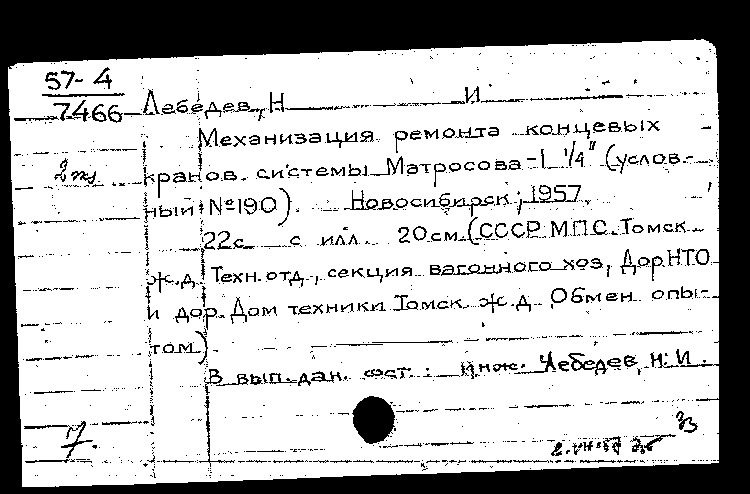 57-4
7466 Лебедев, Н И
Механизация ремонта концевых
2 кз кранов. системы Матросова-1 1/4" (услов-
ный №190). Новосибирск, 1957.
22с с илл. 20см (СССР МПС. Томск
ж.д. Техн. отд., секция вагонного хоз, Дор.НТО
и дор. Дом техники Томск. ж.д. Обмен опы-
том).
В вып. дан. сост.: инж. Лебедев, Н.И.
7.